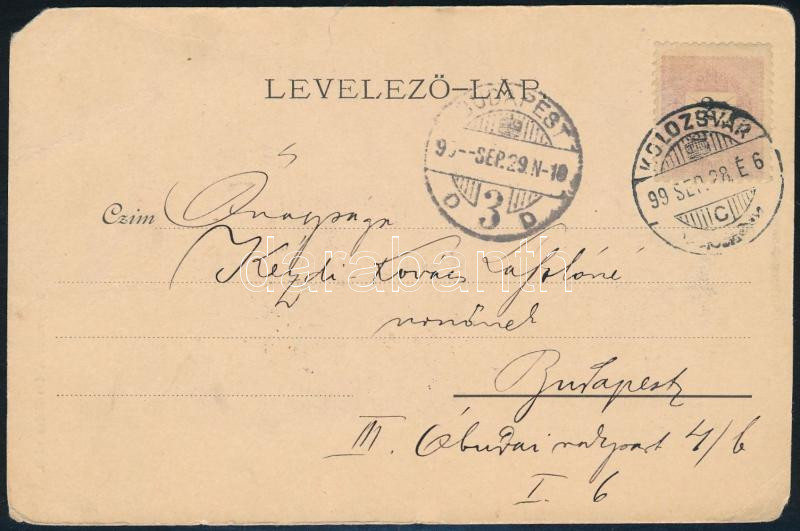 LEVELEZŐ-LAP
BUDAPEST
99--SEP.29.N-10
D 3 D
2
KOLOZSVÁR
99 SEP.28.É 6
C
Czim Őnagysága
Kézdi Kovács Lászlóné
nőnek
darabanth
Budapest
III. Óbudai rakpart 4/b
I. 6